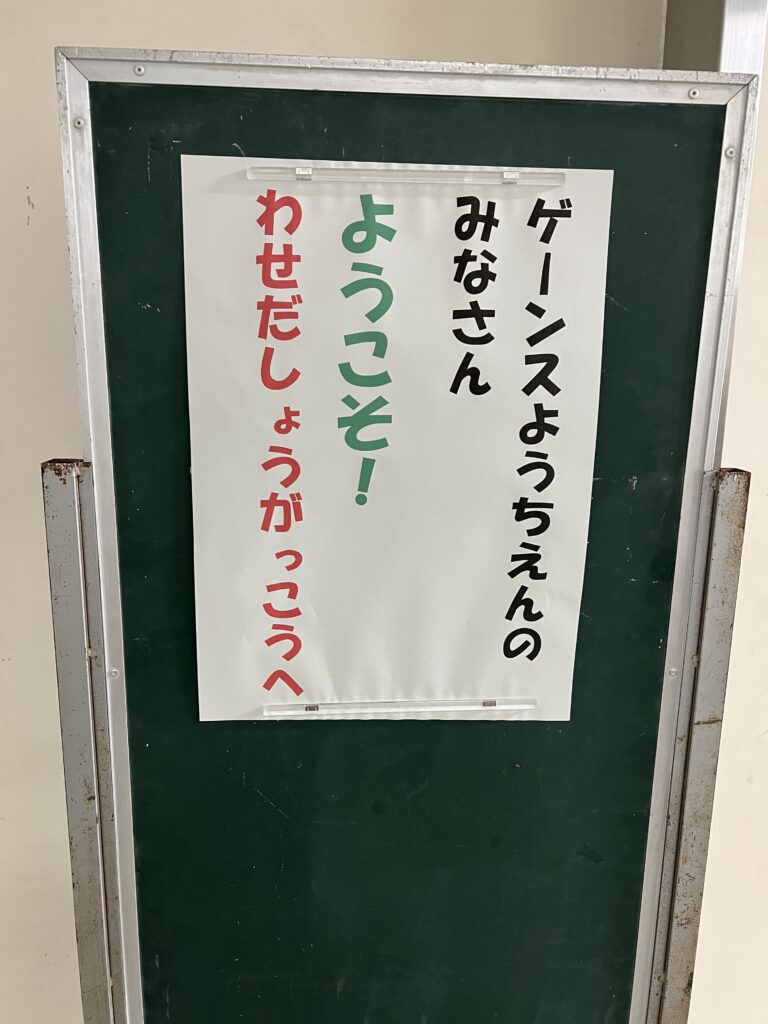 ゲーンスようちえんの
みなさん
ようこそ!
わせだしょうがっこうへ